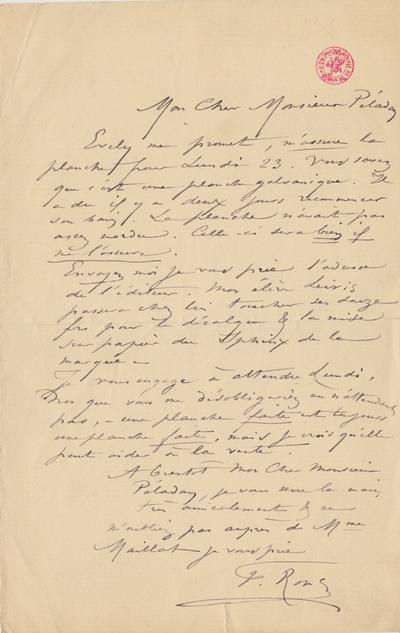 Mon Cher Monsieur Péladan
Evely me promet, m'assure la
planche pour Lundi 23. Vous savez
que c'est une planche galvanique. Il
a dû il y a deux jours recommencer
son bain. La planche n'avait pas
assez mordu. Celle-ci sera bien il
me l'assure.
Envoyez moi je vous prie l'adresse
de l'éditeur. Mon élève
passera chez lui toucher ses douze
frs pour le décalque & la mise
sur papier du Sphinx de la
marque –
Je vous engage à attendre Lundi,
Non que vous me désobligeriez en n'attendant
pas, – une planche faite est toujours
une planche faite, mais je crois qu'elle
peut aider à la vente.
A bientôt Mon Cher Monsieur
Péladan, je vous serre la main
très amicalement & ne
m'oubliez pas auprès de Mme
Maillat je vous prie
F. Rops